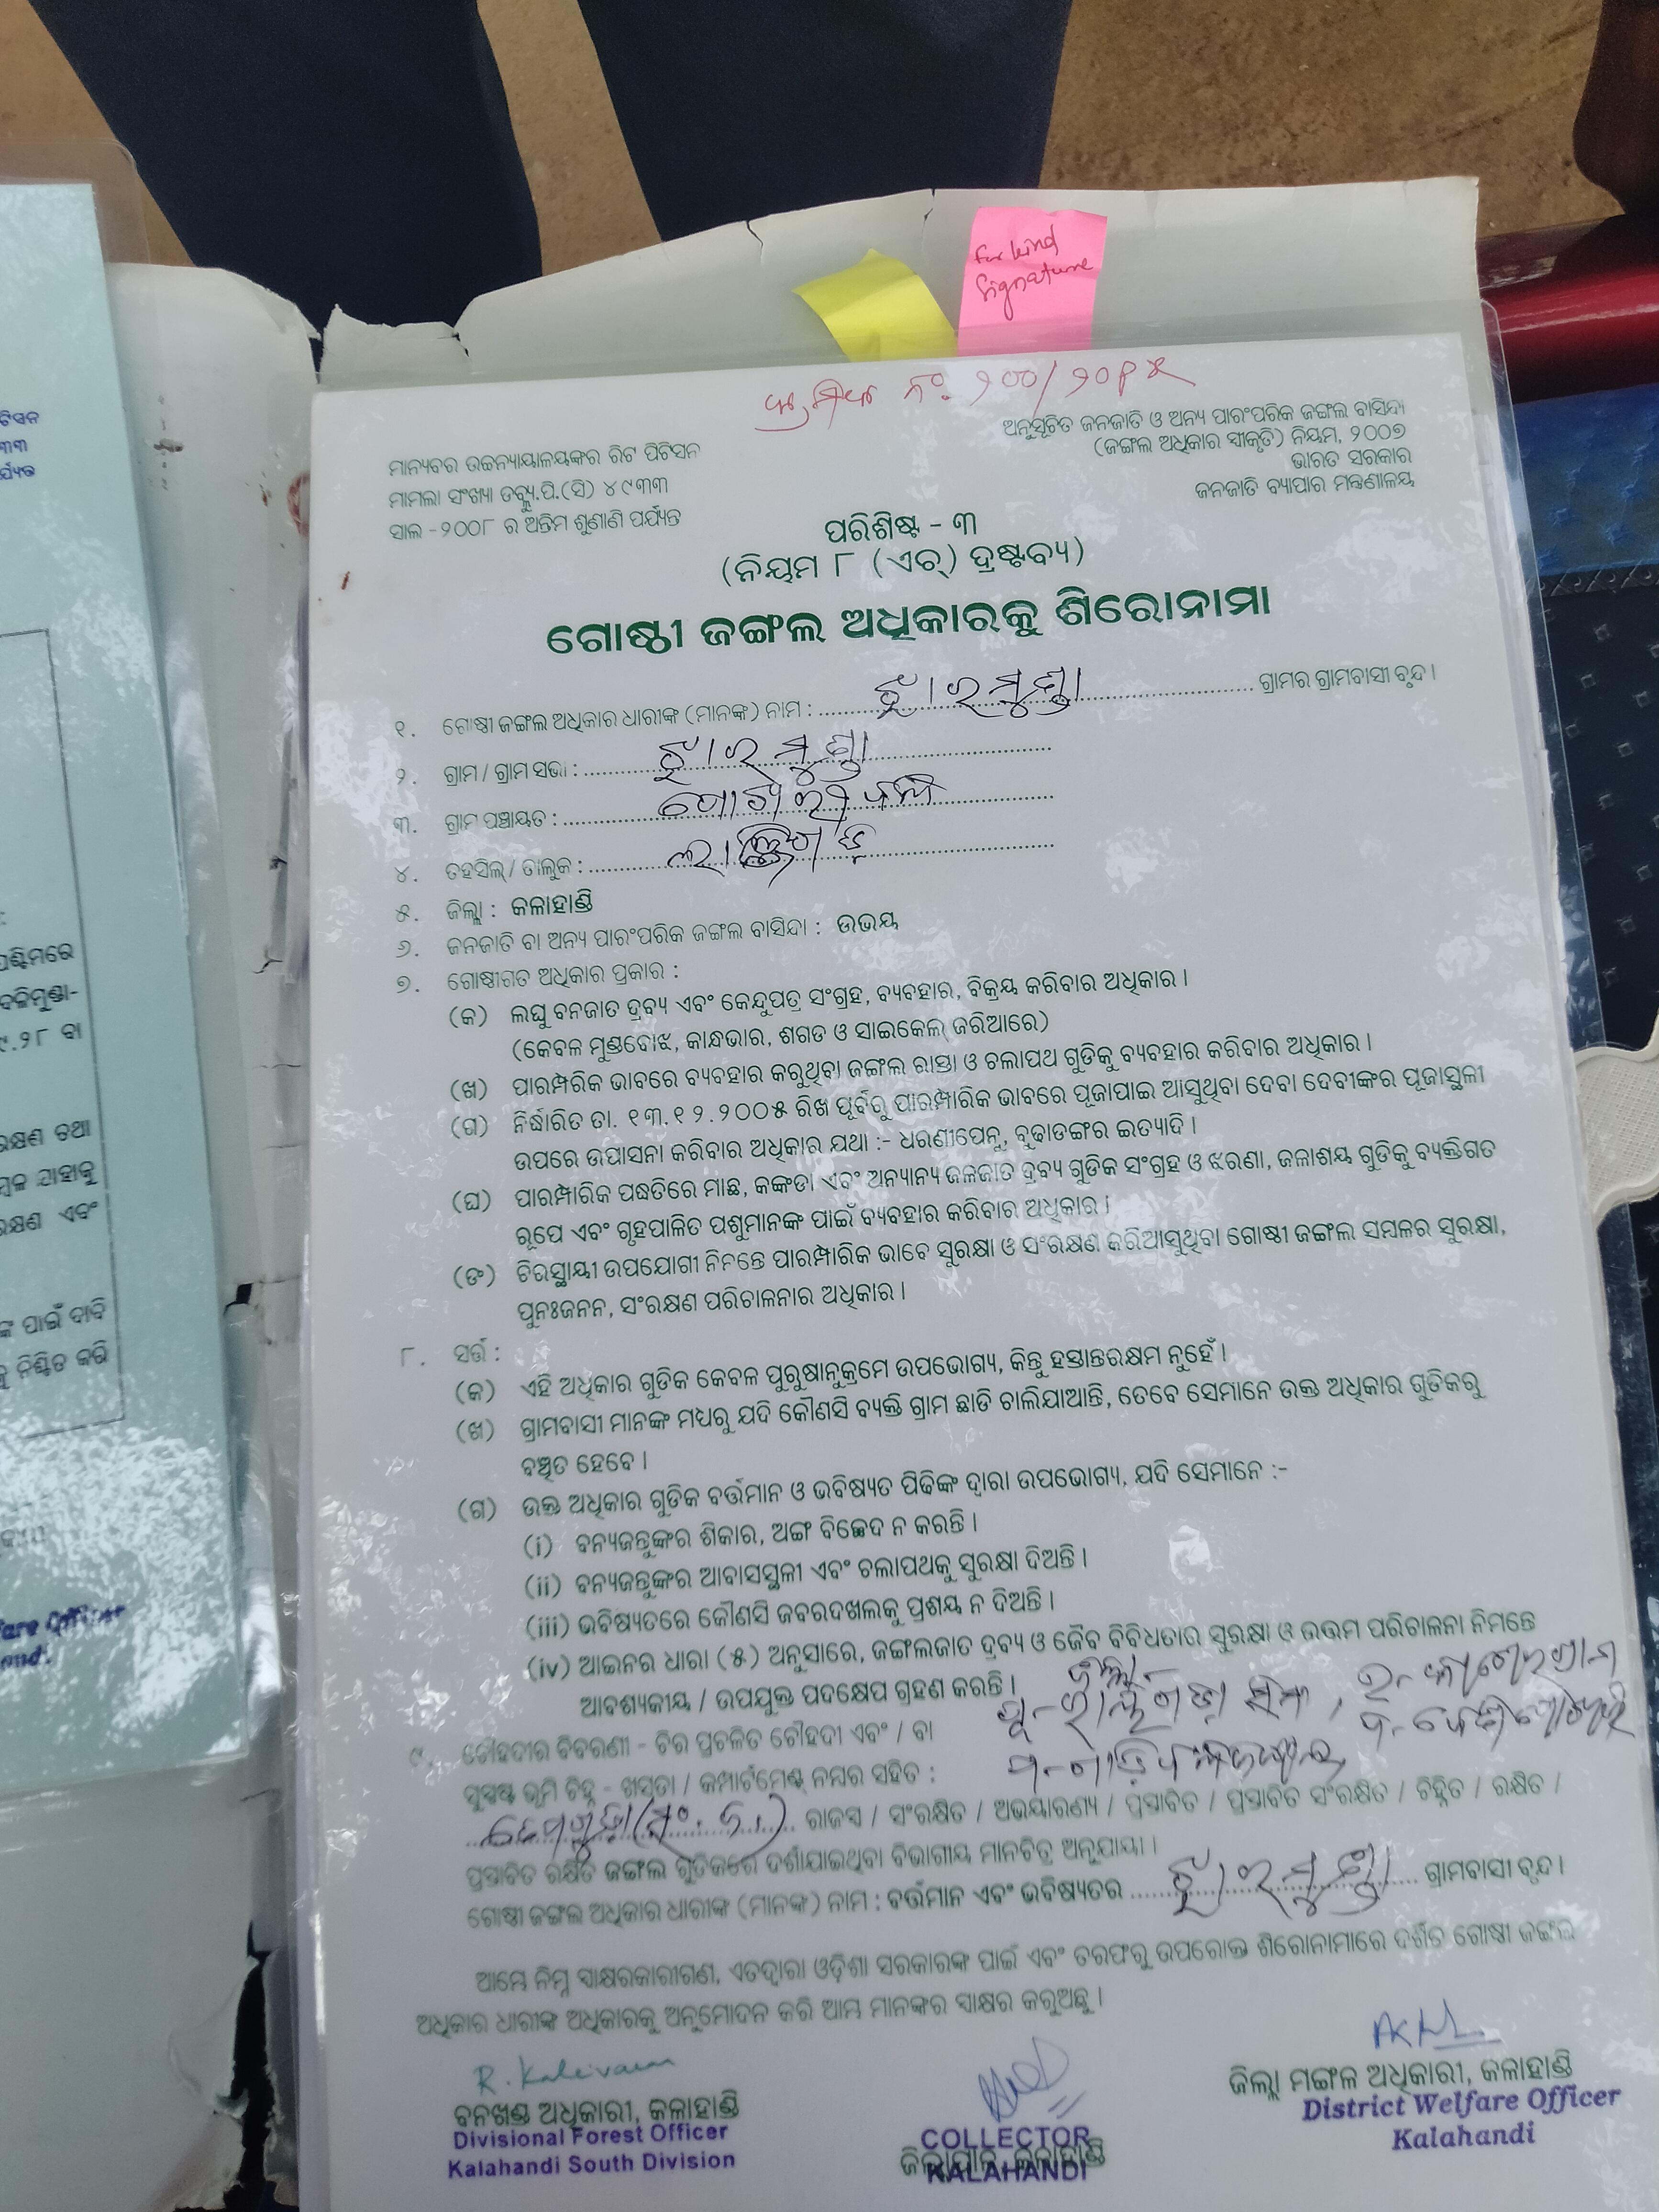 for kind
Signature
କ୍ରମିକ ନଂ. ୨୦୦/୨୦୧୪
ମାନ୍ୟବର ଉଚ୍ଚନ୍ୟାୟାଳୟଙ୍କର ରିଟ ପିଟିସନ
ମାମଲା ସଂଖ୍ୟା ଡବ୍ଲ୍ୟୁ.ପି.(ସି) ୪୯୩୩
ସାଲ -୨୦୦୮ ର ଅନ୍ତିମ ଶୁଣାଣି ପର୍ଯ୍ୟନ୍ତ
ଅନୁସୂଚିତ ଜନଜାତି ଓ ଅନ୍ୟ ପାରଂପରିକ ଜଙ୍ଗଲ ବାସିନ୍ଦା
(ଜଙ୍ଗଲ ଅଧିକାର ସ୍ୱୀକୃତି) ନିୟମ, ୨୦୦୭
ଭାରତ ସରକାର
ଜନଜାତି ବ୍ୟାପାର ମନ୍ତ୍ରଣାଳୟ
ପରିଶିଷ୍ଟ - ୩
(ନିୟମ ୮ (ଏଚ୍) ଦ୍ରଷ୍ଟବ୍ୟ)
ଗୋଷ୍ଠୀ ଜଙ୍ଗଲ ଅଧିକାରକୁ ଶିରୋନାମା
୧. ଗୋଷ୍ଠୀ ଜଙ୍ଗଲ ଅଧିକାର ଧାରୀଙ୍କ (ମାନଙ୍କ) ନାମ : ଝାରମୁଣ୍ଡା ଗ୍ରାମର ଗ୍ରାମବାସୀ ବୃନ୍ଦ ।
୨. ଗ୍ରାମ / ଗ୍ରାମ ସଭା : ଝାରମୁଣ୍ଡା
୩. ଗ୍ରାମ ପଞ୍ଚାୟତ :
୪. ତହସିଲ୍ / ତାଲୁକ : ଲାଞ୍ଜିଗଡ଼
୫. ଜିଲ୍ଲା : କଳାହାଣ୍ଡି
୬. ଜନଜାତି ବା ଅନ୍ୟ ପାରଂପରିକ ଜଙ୍ଗଲ ବାସିନ୍ଦା : ଉଭୟ
୭. ଗୋଷ୍ଠୀଗତ ଅଧିକାର ପ୍ରକାର :
(କ) ଲଘୁ ବନଜାତ ଦ୍ରବ୍ୟ ଏବଂ କେନ୍ଦୁପତ୍ର ସଂଗ୍ରହ, ବ୍ୟବହାର, ବିକ୍ରୟ କରିବାର ଅଧିକାର ।
(କେବଳ ମୁଣ୍ଡବୋଝ, କାନ୍ଧଭାର, ଶଗଡ ଓ ସାଇକେଲ୍ ଜରିଆରେ)
(ଖ) ପାରମ୍ପରିକ ଭାବରେ ବ୍ୟବହାର କରୁଥିବା ଜଙ୍ଗଲ ରାସ୍ତା ଓ ଚଲାପଥ ଗୁଡିକୁ ବ୍ୟବହାର କରିବାର ଅଧିକାର ।
(ଗ) ନିର୍ଦ୍ଧାରିତ ତା. ୧୩.୧୨.୨୦୦୫ ରିଖ ପୂର୍ବରୁ ପାରମ୍ପାରିକ ଭାବରେ ପୂଜାପାଇ ଆସୁଥିବା ଦେବା ଦେବୀଙ୍କର ପୂଜାସ୍ଥଳୀ
ଉପରେ ଉପାସନା କରିବାର ଅଧିକାର ଯଥା :- ଧରଣୀପେନୁ, ବୁଢାଡଙ୍ଗର ଇତ୍ୟାଦି ।
(ଘ) ପାରମ୍ପାରିକ ପଦ୍ଧତିରେ ମାଛ, କଙ୍କଡା ଏବଂ ଅନ୍ୟାନ୍ୟ ଜଳଜାତ ଦ୍ରବ୍ୟ ଗୁଡିକ ସଂଗ୍ରହ ଓ ଝରଣା, ଜଳାଶୟ ଗୁଡିକୁ ବ୍ୟକ୍ତିଗତ
ରୂପେ ଏବଂ ଗୃହପାଳିତ ପଶୁମାନଙ୍କ ପାଇଁ ବ୍ୟବହାର କରିବାର ଅଧିକାର ।
(ଙ) ଚିରସ୍ଥାୟୀ ଉପଯୋଗୀ ନିମନ୍ତେ ପାରମ୍ପାରିକ ଭାବେ ସୁରକ୍ଷା ଓ ସଂରକ୍ଷଣ କରିଆସୁଥିବା ଗୋଷ୍ଠୀ ଜଙ୍ଗଲ ସମ୍ବଳର ସୁରକ୍ଷା,
ପୁନଃଜନନ, ସଂରକ୍ଷଣ ପରିଚାଳନାର ଅଧିକାର ।
୮. ସର୍ତ୍ତ :
(କ) ଏହି ଅଧିକାର ଗୁଡିକ କେବଳ ପୁରୁଷାନୁକ୍ରମେ ଉପଭୋଗ୍ୟ, କିନ୍ତୁ ହସ୍ତାନ୍ତରକ୍ଷମ ନୁହେଁ ।
(ଖ) ଗ୍ରାମବାସୀ ମାନଙ୍କ ମଧ୍ୟରୁ ଯଦି କୌଣସି ବ୍ୟକ୍ତି ଗ୍ରାମ ଛାଡି ଚାଲିଯାଆନ୍ତି, ତେବେ ସେମାନେ ଉକ୍ତ ଅଧିକାର ଗୁଡିକରୁ
ବଞ୍ଚିତ ହେବେ ।
(ଗ) ଉକ୍ତ ଅଧିକାର ଗୁଡିକ ବର୍ତ୍ତମାନ ଓ ଭବିଷ୍ୟତ ପିଢିଙ୍କ ଦ୍ୱାରା ଉପଭୋଗ୍ୟ, ଯଦି ସେମାନେ :-
(i) ବନ୍ୟଜନ୍ତୁଙ୍କର ଶିକାର, ଅଙ୍ଗ ବିଚ୍ଛେଦ ନ କରନ୍ତି ।
(ii) ବନ୍ୟଜନ୍ତୁଙ୍କର ଆବାସସ୍ଥଳୀ ଏବଂ ଚଲାପଥକୁ ସୁରକ୍ଷା ଦିଅନ୍ତି ।
(iii) ଭବିଷ୍ୟତରେ କୌଣସି ଜବରଦଖଲକୁ ପ୍ରଶୟ ନ ଦିଅନ୍ତି ।
(iv) ଆଇନର ଧାରା (୫) ଅନୁସାରେ, ଜଙ୍ଗଲଜାତ ଦ୍ରବ୍ୟ ଓ ଜୈବ ବିବିଧତାର ସୁରକ୍ଷା ଓ ଉତ୍ତମ ପରିଚାଳନା ନିମନ୍ତେ
ଆବଶ୍ୟକୀୟ / ଉପଯୁକ୍ତ ପଦକ୍ଷେପ ଗ୍ରହଣ କରନ୍ତି ।
୯. ଚୌହଦୀର ବିବରଣୀ - ଚିର ପ୍ରଚଳିତ ଚୌହଦୀ ଏବଂ / ବା
ସୁସ୍ପଷ୍ଟ ଭୂମି ଚିହ୍ନ - ଖସଡା / କମ୍ପାର୍ଟମେଣ୍ଟ ନମ୍ବର ସହିତ :
ରାଜସ୍ୱ / ସଂରକ୍ଷିତ / ଅଭୟାରଣ୍ୟ / ପ୍ରସ୍ତାବିତ / ପ୍ରସ୍ତାବିତ ସଂରକ୍ଷିତ / ଚିହ୍ନିତ / ରକ୍ଷିତ /
ପ୍ରସ୍ତାବିତ ରକ୍ଷିତ ଜଙ୍ଗଲ ଗୁଡିକରେ ଦର୍ଶାଯାଇଥିବା ବିଭାଗୀୟ ମାନଚିତ୍ର ଅନୁଯାୟୀ ।
ଗୋଷ୍ଠୀ ଜଙ୍ଗଲ ଅଧିକାର ଧାରୀଙ୍କ (ମାନଙ୍କ) ନାମ : ବର୍ତ୍ତମାନ ଏବଂ ଭବିଷ୍ୟତର ଝାରମୁଣ୍ଡା ଗ୍ରାମବାସୀ ବୃନ୍ଦ ।
ଆମ୍ଭେ ନିମ୍ନ ସ୍ୱାକ୍ଷରକାରୀଗଣ, ଏତଦ୍ୱାରା ଓଡ଼ିଶା ସରକାରଙ୍କ ପାଇଁ ଏବଂ ତରଫରୁ ଉପରୋକ୍ତ ଶିରୋନାମାରେ ଦର୍ଶିତ ଗୋଷ୍ଠୀ ଜଙ୍ଗଲ
ଅଧିକାର ଧାରୀଙ୍କ ଅଧିକାରକୁ ଅନୁମୋଦନ କରି ଆମ୍ଭ ମାନଙ୍କର ସ୍ୱାକ୍ଷର କରୁଅଛୁ ।
ବନଖଣ୍ଡ ଅଧିକାରୀ, କଳାହାଣ୍ଡି
Divisional Forest Officer
Kalahandi South Division
ଜିଲ୍ଲାପାଳ, କଳାହାଣ୍ଡି
COLLECTOR
KALAHANDI
ଜିଲ୍ଲା ମଙ୍ଗଳ ଅଧିକାରୀ, କଳାହାଣ୍ଡି
District Welfare Officer
Kalahandi